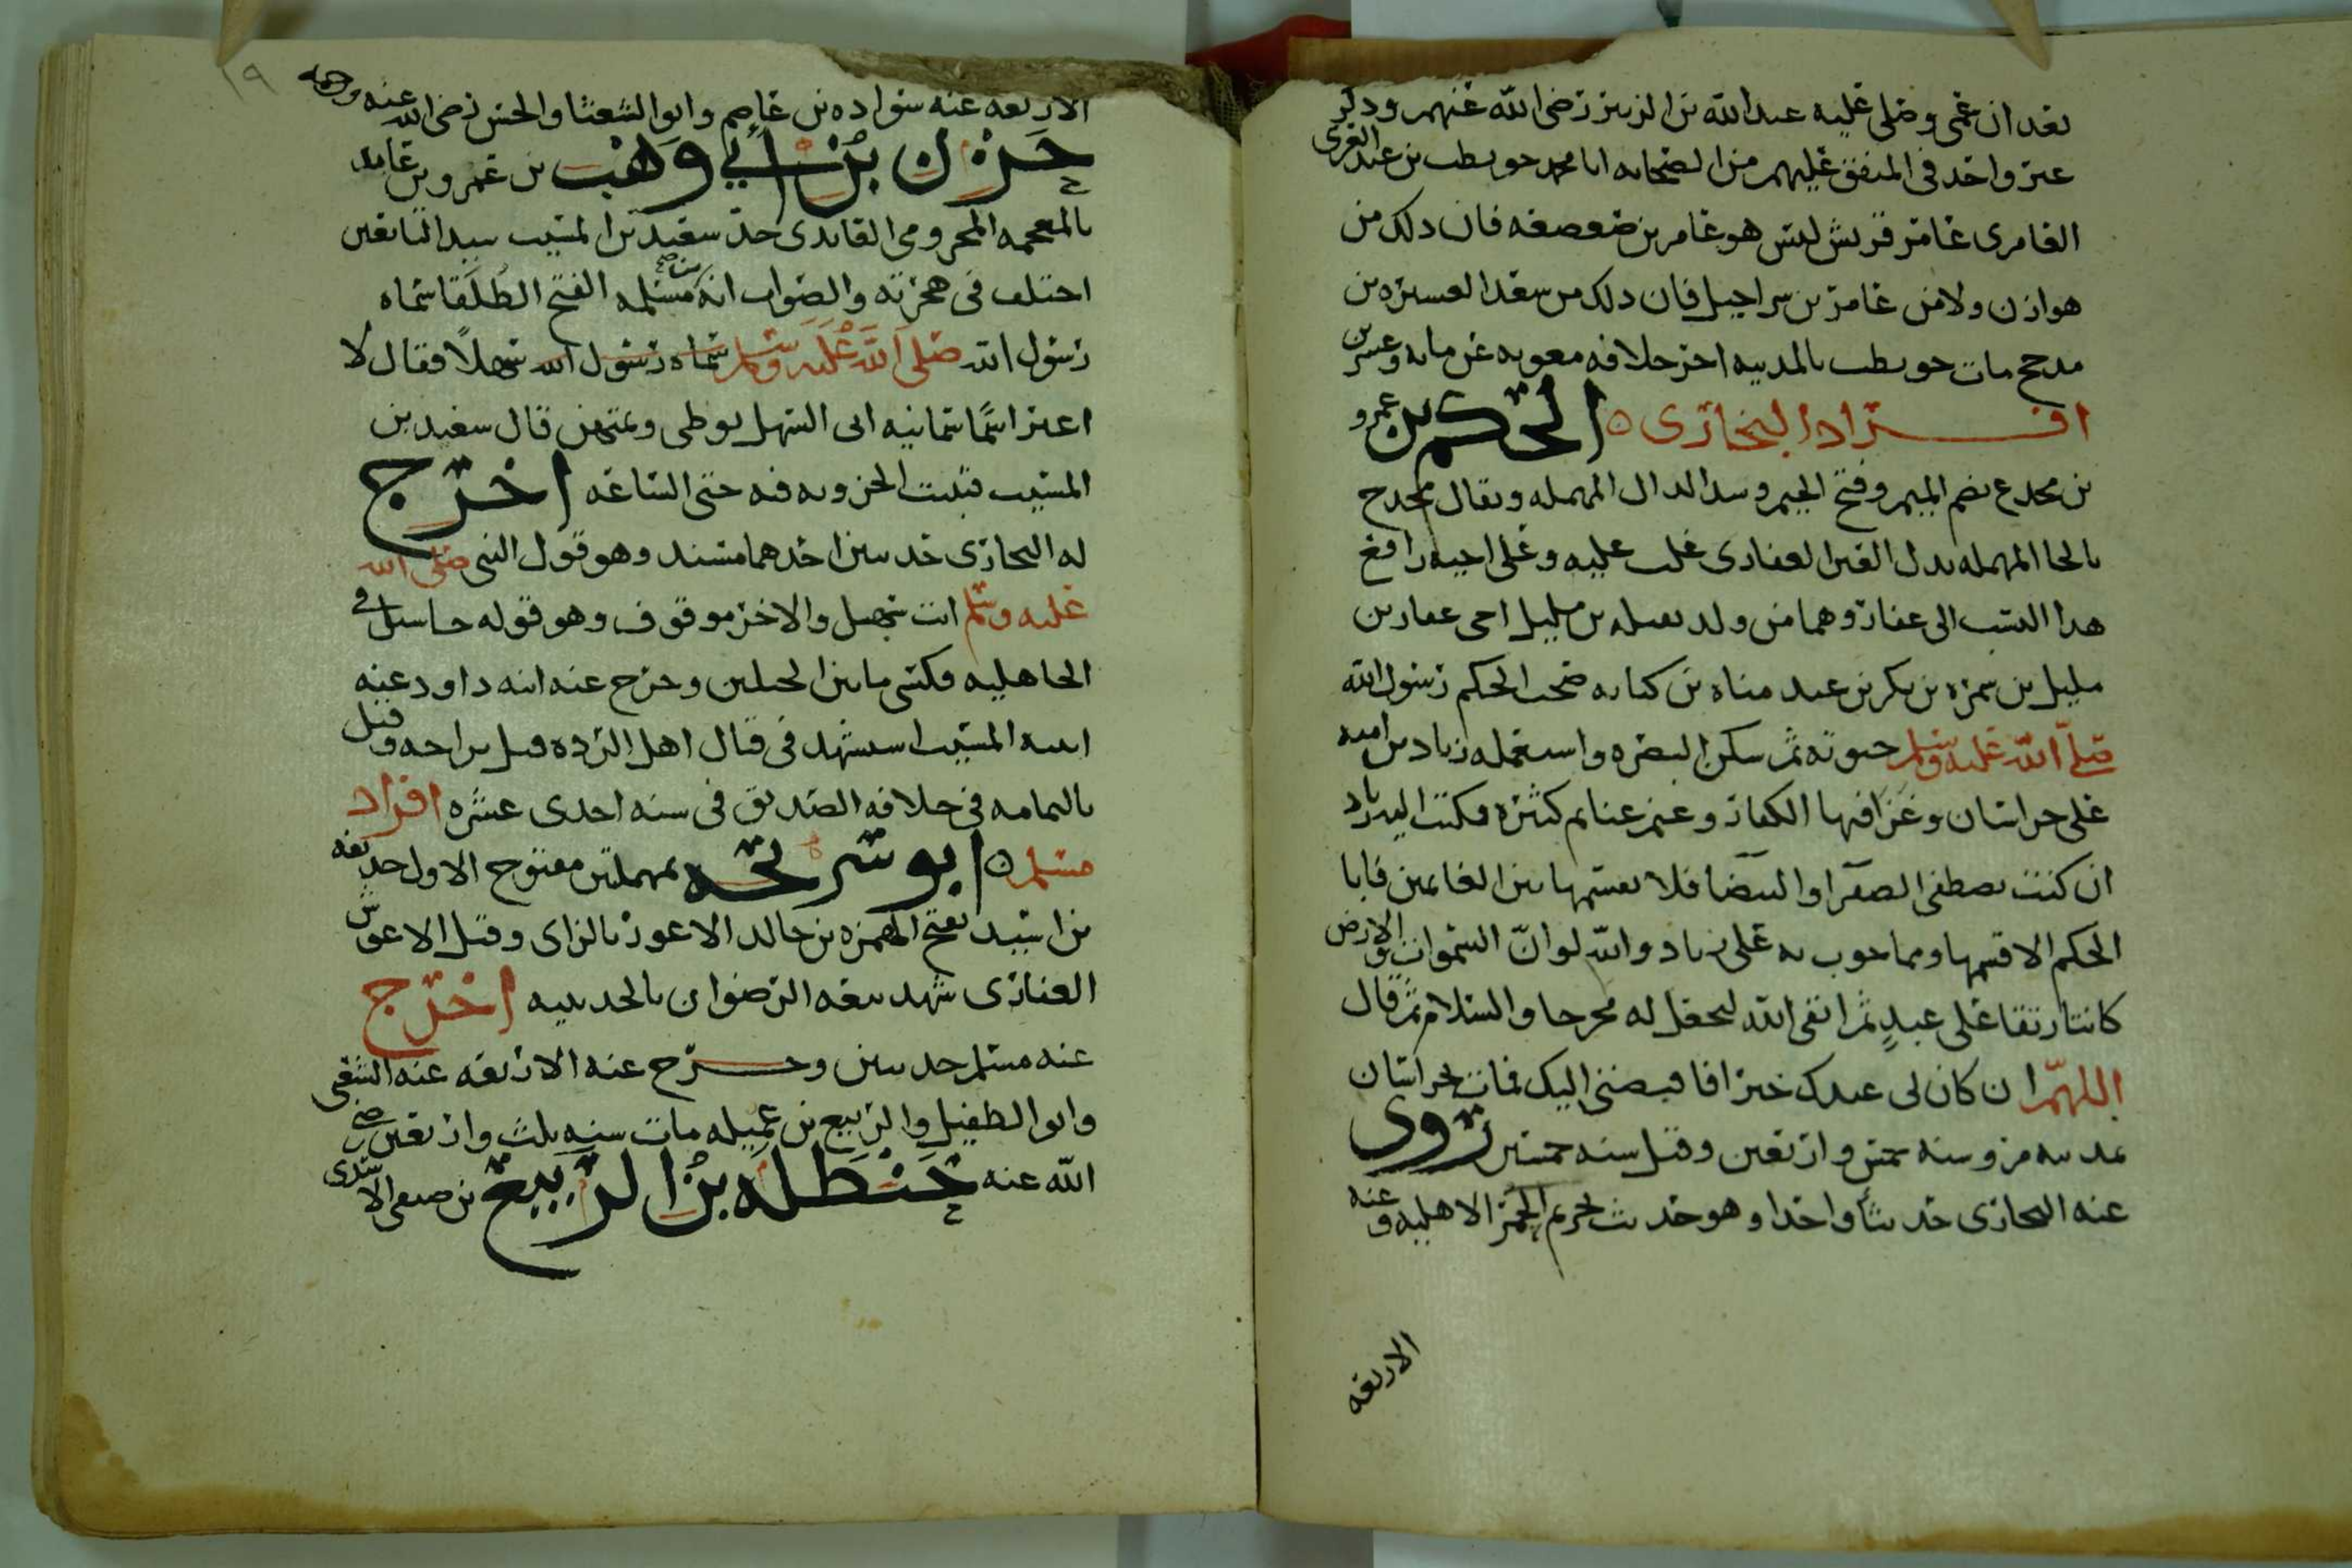 بعد ان عمى وصلى عليه عبد الله بن الزبير رضى الله عنهم وذكر
عبر واحد فى المتفق عليهم من الصحابه ابا محمد حويطب بن عبد العزى
العامرى عامر قريش ليس هو عامر بن صعصعه فان ذلك من
هوازن ولا من عامر بن شراحيل فان ذلك من سعد العسيره من
مدحج مات حويطب بالمدينه اخر خلافه معويه عن مايه وعشرين
افراد البخارى ه الحكم بن عمرو
بن مجدع بضم الميم وفتح الجيم وشد الدال المهمله ويقال مجدح
بالحا المهمله بدل العين الغفارى غلب عليه وعلى اخيه رافع
هدا النسب الى غفار وهما من ولد نعيله بن مليل اخى غفار بن
مليل بن ضمره بن بكر بن عبد مناه بن كنانه صحب الحكم رسول الله
صلى الله عليه وسلم حيوته ثم سكن البصره واستعمله زياد بن اميه
على خراسان وغزا فيها الكفار وغنم غنايم كثيره فكتب اليه زياد
ان كنت تصطفى الصفرا والبيضا فلا تقسمها بين الغانمين فابا
الحكم الا قسمها ومما جوب به على زياد والله لو انّ السموات والارض
كانتا رتقا على عبدٍ ثم اتقى الله لجعل له مخرجا والسلام ثم قال
اللهمّ ان كان لى عندك خير افاقبضنى اليك فمات بخراسان
بمدينه مرو سنه خمس واربعين وقيل سنه خمسين روى
عنه البخارى حديثاً واحدا وهو حديث تحريم الحمر الاهليه وعنه
الاربعه
١٩
الاربعه عنه سواده بن عاصم وابو الشعثا والحسن رضى الله عنه ورحمه
حزن بن أبي وهب بن عمرو بن عايد
بالمعجمه المخزومى العابدى جد سعيد بن المسيب سيد التابعين
اختلف فى هجرته والصواب انه من مسلمه الفتح الطلقا سماه
رسول الله صلى الله عليه وسلم سماه رسول الله سهلاً فقال لا
اعبر اسمًا سمانيه ابى السهل يوطى ويمتهن قال سعيد بن
المسيب فتلبت الحزونه فيه حتى الساعه اخرج
له البخارى حديثين احدهما مسند وهو قول النبى صلى الله
عليه وسلم انت سهل والاخر موقوف وهو قوله جا سيل فى
الجاهليه فكسى مابين الجبلين وخرج عنه ابنه داود عنه
ابنه المسيب استشهد فى قتال اهل الرده قيل ببزاخه وقيل
باليمامه فى خلافه الصديق فى سنه احدى عشره افراد
مسلم ه ابو سريحه بمهملتين مفتوح الاول حديفه
بن اسيد بفتح الهمزه بن خالد الاعوز بالزاى وقيل الاعوس
الغفارى شهد بيعه الرضوان بالحديبيه اخرج
عنه مسلم حديثين وخرج عنه الاربعه عنه الشعبى
وابو الطفيل والربيع بن عميله مات سنه ثلث واربعين رضى
الله عنه حنظله بن الربيع بن صيفى الاسدى